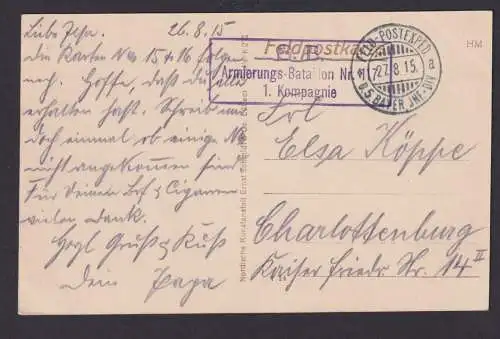 26.8.15
Liebe Elsa.
die Karten No 15 & 16 folgen
nach. Hoffe, daß Du alles
erhalten hast. Schreib mir
doch einmal ob einige No
nicht angekommen sind
Für Deinen Brf & Cigarren
vielen Dank.
Herzl Gruß & Kuß
Dein Papa
Feldpostkarte
S. B.
Armierungs-Bataillon Nr.
1. Kompagnie
FELD-POSTEXPED.
27.8.15.
a
D. 5. BAYER. INF.-DIV.
HM
Frl
Elsa Köppe
Charlottenburg
Kaiser Friedr. Str. 14 II
Nordische Kunstanstalt Ernst